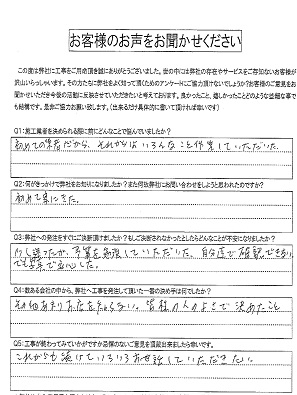 お客様のお声をお聞かせください
この度は弊社に工事をご用命頂き誠にありがとうございました。世の中には弊社の存在やサービスをご存知ないお客様が
沢山いらっしゃいます。その方たちに弊社をよく知って頂くためのアンケートにご協力頂けないでしょうか?お客様のご意見をお
聞かせいただき今後の活動に反映させていただきたいと考えております。良かったこと、嬉しかったことどのような些細な事で
も結構です。是非ご協力お願い致します。(出来るだけ具体的に書いて頂ければ幸いです)
Q1:施工業者を決められる際に前にどんなことで悩んでいましたか?
初めての業者だから、それからはいろんなこと作業していただいた。
Q2:何がきっかけで弊社をお知りになりましたか?また何故弊社にお問い合わせをしようと思われたのですか?
初めて耳にきた。
Q3:弊社への発注をすぐにご決断頂けましたか?もしご決断されなかったとしたらどんなことが不安になりましたか?
少し迷ったが、予算を考慮していただいた。自分達で確認できない
Q4:数ある会社の中から、弊社へ工事を発注して頂いた一番の決め手は何でしたか?
その他あまりお店を知らない。皆様の人のよさで決めたこと
Q5:工事が終わってみていかがですか忌憚のないご意見を頂戴出来ましたら幸いです。
これからも続けていろいろお世話していただきたい。